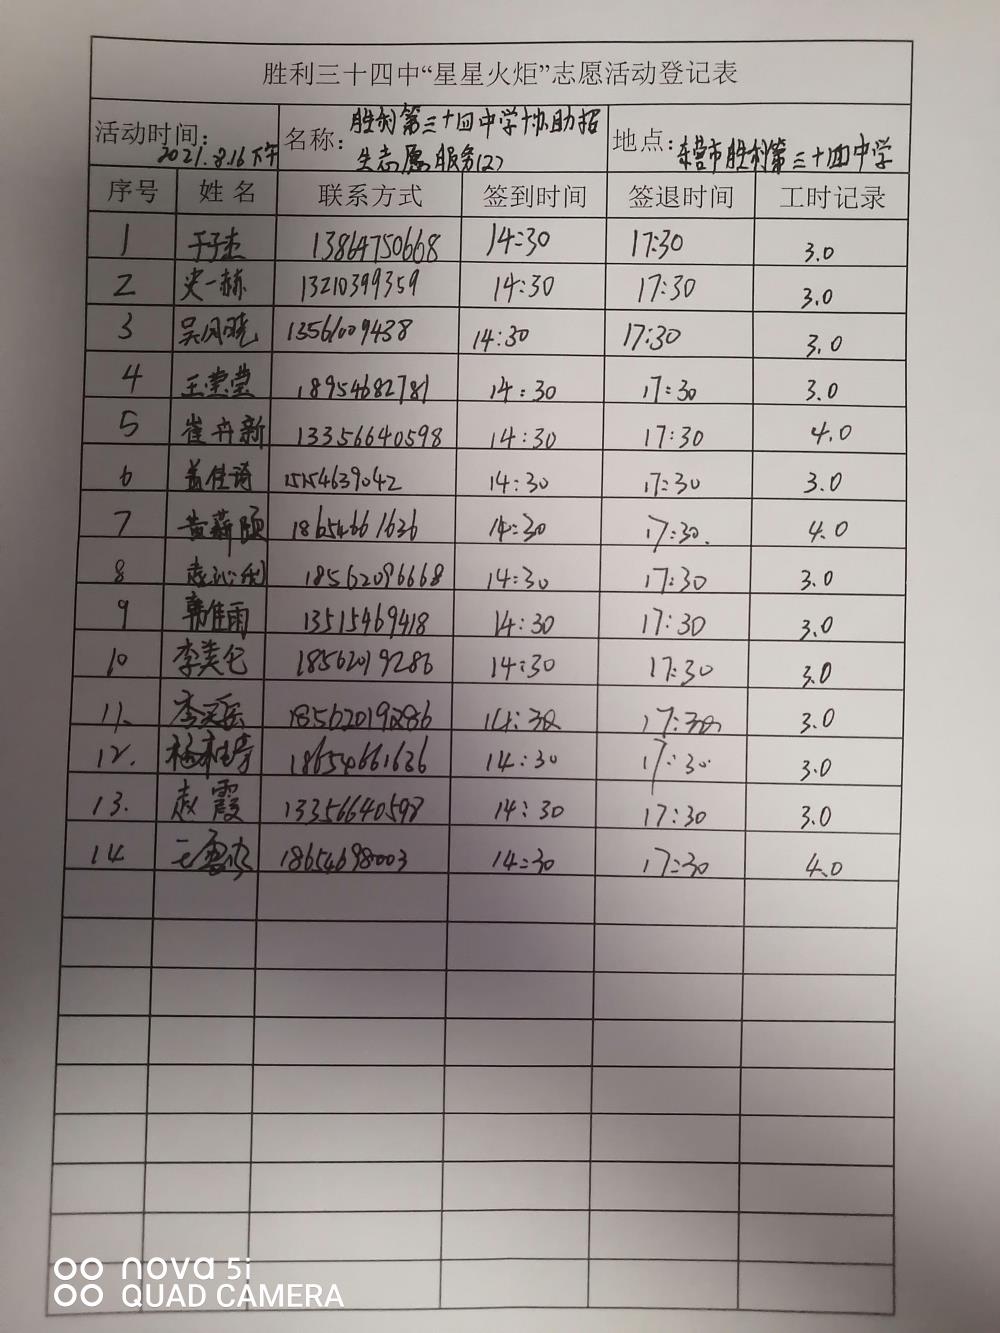 胜利三十四中“星星火炬”志愿活动登记表
活动时间: 2021.8.16下午 名称: 胜利第三十四中学协助招生志愿服务(2) 地点: 东营市胜利第三十四中学
序号 姓名 联系方式 签到时间 签退时间 工时记录
1 于子杰 13864750668 14:30 17:30 3.0
2 史一赫 13210399359 14:30 17:30 3.0
3 吴月晓 13561009438 14:30 17:30 3.0
4 王莹莹 18954682781 14:30 17:30 3.0
5 崔卉新 13356640598 14:30 17:30 4.0
6 盖佳琦 15154639042 14:30 17:30 3.0
7 黄薪颐 18654661636 14:30 17:30. 4.0
8 18562096668 14:30 17:30 3.0
9 韩佳雨 13515469418 14:30 17:30 3.0
10 李美仑 18562019286 14:30 17:30 3.0
11. 18562019286 14:30 17:30 3.0
12. 18654661636 14:30 17:30 3.0
13. 赵霞 13356640598 14:30 17:30 3.0
14 18654698003 14:30 17:30 4.0
nova 5i
QUAD CAMERA